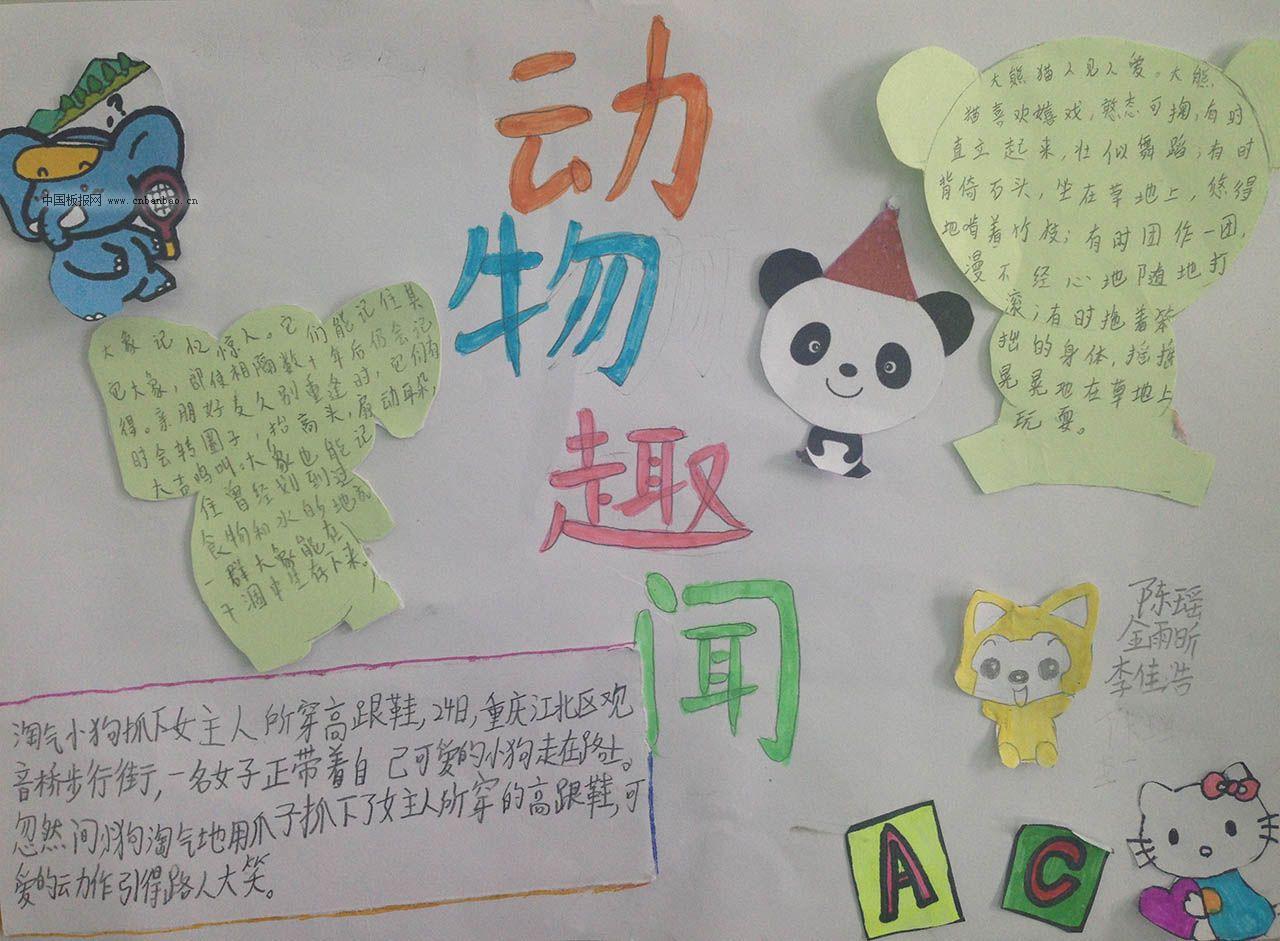 动
物
趣
闻
中国板报网 www.cnbanbao.cn
大象记忆惊人。它们能记住其
它大象，即使相隔数十年后仍会记
得。亲朋好友久别重逢时，它们有
时会转圈子，抬高头，扇动耳朵，
大吉鸣叫。大象也能记
住曾经找到过
食物和水的地方
一群大象能在
干涸中生存下来。
大熊猫人见人爱。大熊
猫喜欢嬉戏，憨态可掬，有时
直立起来，壮似舞蹈；有时
背倚石头，坐在草地上，悠得
地啃着竹枝；有时团作一团，
漫不经心地随地打
滚；有时拖着笨
拙的身体，摇摇
晃晃地在草地上
玩耍。
淘气小狗抓下女主人所穿高跟鞋，24日，重庆江北区观
音桥步行街，一名女子正带着自己可爱的小狗走在路上。
忽然间小狗淘气地用爪子抓下了女主人所穿的高跟鞋，可
爱的动作引得路人大笑。
陈瑶
金雨昕
李佳浩
A
C